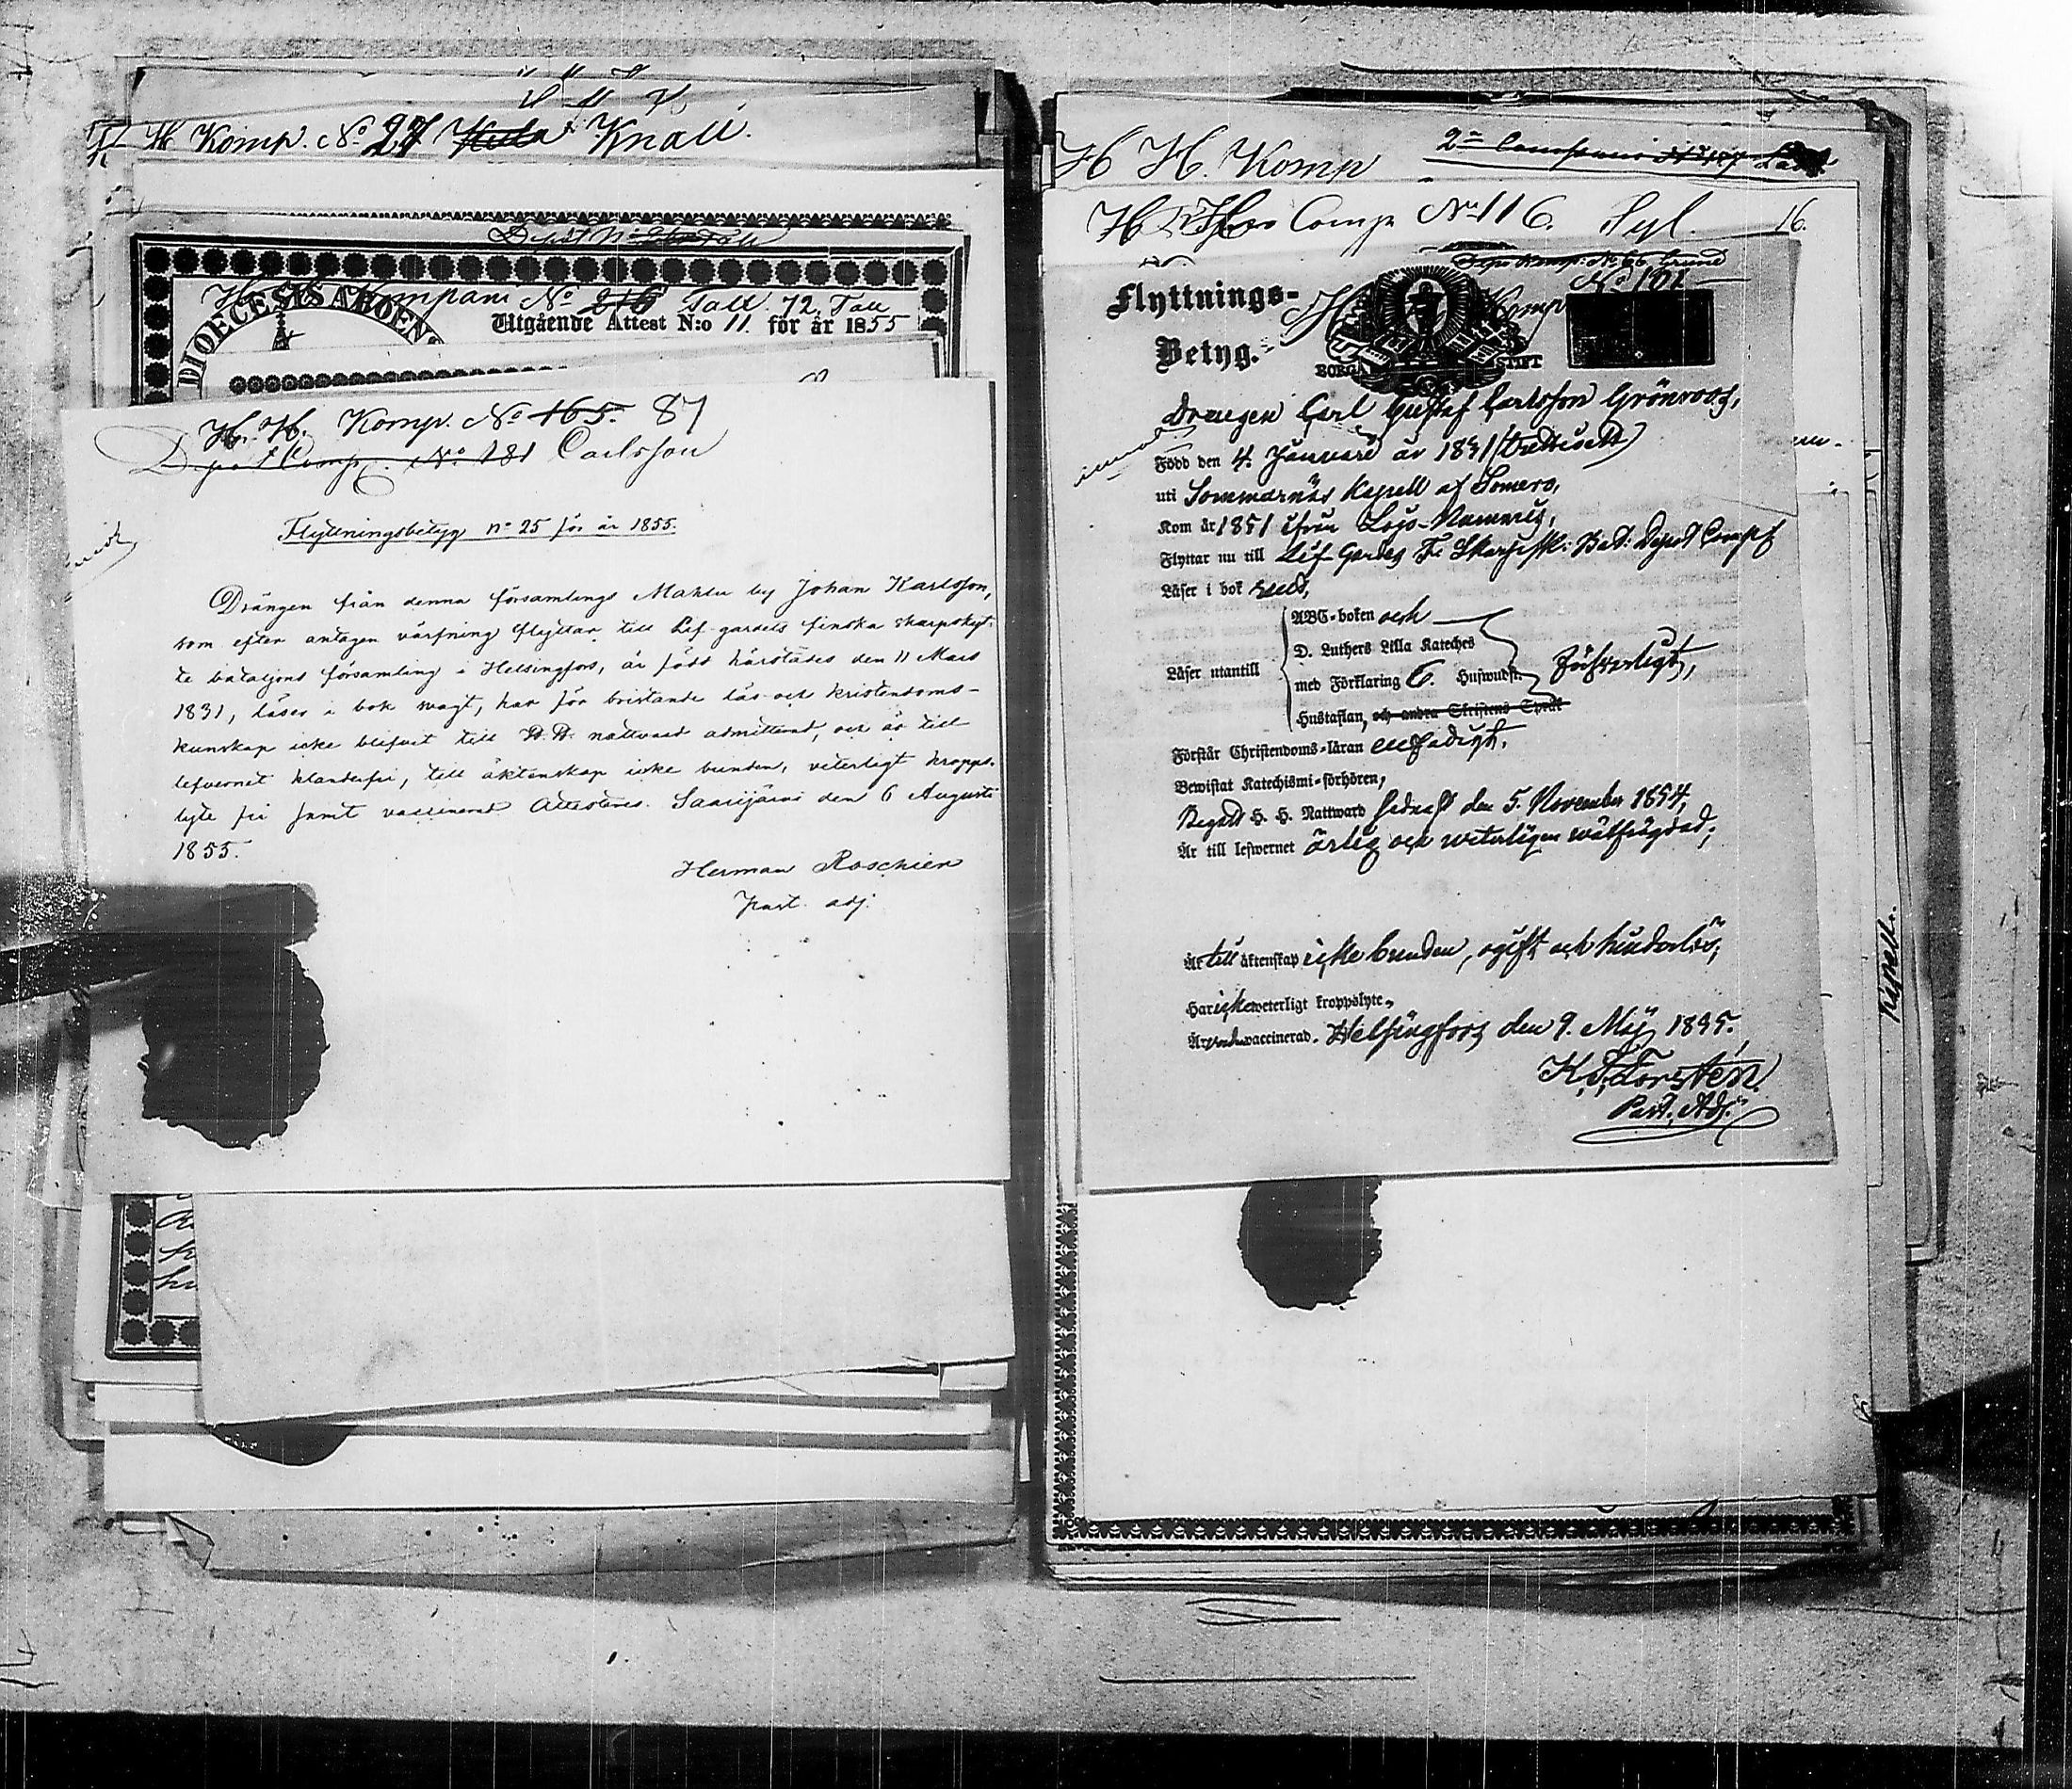 H Komp. No. 27 Knall.
Depôt No
Kompani No 216 Tall. 72. Tall
DIOECESIS ABOENS
Utgående Attest N:o 11. för år 1855
H. H. Komp. No 165. 87
Depôt Comp. No. 181 Carlsson
Flyttningsbetyg no 25 för år 1855.
Drängen från denna församlings Mahlu by Johan Karlsson,
som efter antagen värfning flyttar till Lif-gardets finska skarpskyt-
te bataljons församling i Helsingfors, är född härstädes den 11 Mars
1831, läser i bok svagt, har för bristande läs- och kristendoms-
kunskap icke blifvit till H. H. nattvard admitterad, och är till
lefvernet klanderfri, till äktenskap icke bunden, veterligt kropps-
lyte fri samt vaccinerad. Attesteras. Saarijärvi den 6 Augusti
1855.
Herman Roschier
past. adj.
H H. Komp
2n Compani
H Comp No 116. Syl. 16.
Depot Komp: No 66 Grund
No 101
Flyttnings-
Betyg.
Komp
BORGÅ STIFT
Drengen Carl Gustaf Carlsson Grönroos,
Född den 4. Januari år 1831 (trettiett)
uti Sommarnäs Kapell af Somero,
Kom år 1851 ifrån Lojo-Nummis,
Flyttar nu till Lif-Gardes F. Skarpsk: Bat: Depot Comp:
Läser i bok
ABC-boken och
D. Luthers Lilla Kateches
Läser utantill
med Förklaring 6. Huswudst.
försvarligt,
Hustaflan, och andra Skriftens Språk
Förstår Christendoms-läran enfaldigt.
Bewistat Katechismi-förhören,
Begått H. H. Nattward sednast den 5. November 1854,
Är till lefwernet ärlig och veterligen wälfrägdad,
Är till äktenskap icke bunden, ogift och hinderlös,
Har icke weterligt kroppslyte,
Är vaccinerad. Helsingfors den 9. Maj 1855.
K. F. Forstén
Past. Adj.